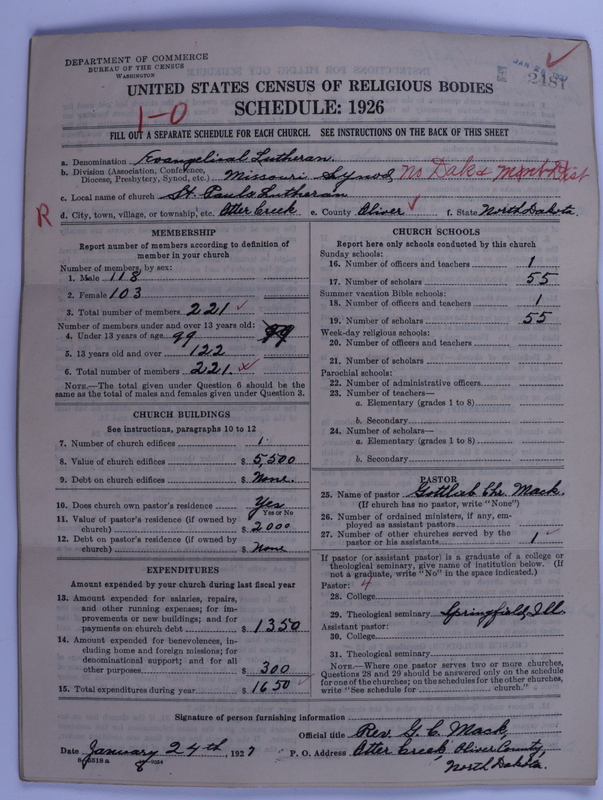 DEPARTMENT OF COMMERCE
BUREAU OF THE CENSUS
WASHINGTON
2481
UNITED STATES CENSUS OF RELIGIOUS BODIES
SCHEDULE: 1926
1-0
FILL OUT A SEPARATE SCHEDULE FOR EACH CHURCH. SEE INSTRUCTIONS ON THE BACK OF THIS SHEET
a. Denomination Evangelical Lutheran.
b. Division (Association, Conference, Diocese, Presbytery, Synod, etc.) Missouri Synod, No Dak &
c. Local name of church St. Pauls Lutheran
R
d. City, town, village, or township, etc. Otter Creek e. County Oliver f. State North Dakota.
MEMBERSHIP
Report number of members according to definition of
member in your church
Number of members by sex:
1. Male 118
2. Female 103
3. Total number of members 221
Number of members under and over 13 years old:
4. Under 13 years of age 99 99
5. 13 years old and over 122
6. Total number of members 221
NOTE.—The total given under Question 6 should be the
same as the total of males and females given under Question 3.
CHURCH BUILDINGS
See instructions, paragraphs 10 to 12
7. Number of church edifices 1
8. Value of church edifices $ 5,500
9. Debt on church edifices $ None.
10. Does church own pastor's residence Yes
Yes or No
11. Value of pastor's residence (if owned by
church) $ 2000
12. Debt on pastor's residence (if owned by
church) $ None
EXPENDITURES
Amount expended by your church during last fiscal year
13. Amount expended for salaries, repairs,
and other running expenses; for im-
provements or new buildings; and for
payments on church debt $ 1350
14. Amount expended for benevolences, in-
cluding home and foreign missions; for
denominational support; and for all
other purposes $ 300
15. Total expenditures during year $ 1650
CHURCH SCHOOLS
Report here only schools conducted by this church
Sunday schools:
16. Number of officers and teachers 1
17. Number of scholars 55
Summer vacation Bible schools:
18. Number of officers and teachers 1
19. Number of scholars 55
Week-day religious schools:
20. Number of officers and teachers
21. Number of scholars
Parochial schools:
22. Number of administrative officers
23. Number of teachers—
a. Elementary (grades 1 to 8)
b. Secondary
24. Number of scholars—
a. Elementary (grades 1 to 8)
b. Secondary
PASTOR
25. Name of pastor Gottlieb Chr. Mack.
(If church has no pastor, write "None")
26. Number of ordained ministers, if any, em-
ployed as assistant pastors
27. Number of other churches served by the
pastor or his assistants 1
If pastor (or assistant pastor) is a graduate of a college or
theological seminary, give name of institution below. (If
not a graduate, write "No" in the space indicated.)
Pastor: 4
28. College
29. Theological seminary Springfield, Ill.
Assistant pastor:
30. College
31. Theological seminary
NOTE.—Where one pastor serves two or more churches,
Questions 28 and 29 should be answered only on the schedule
for one of the churches; on the schedules for the other churches,
write "See schedule for church."
Signature of person furnishing information
Official title Rev. G. C. Mack,
Date January 24th, 1927 P. O. Address Otter Creek Oliver County,
North Dakota.